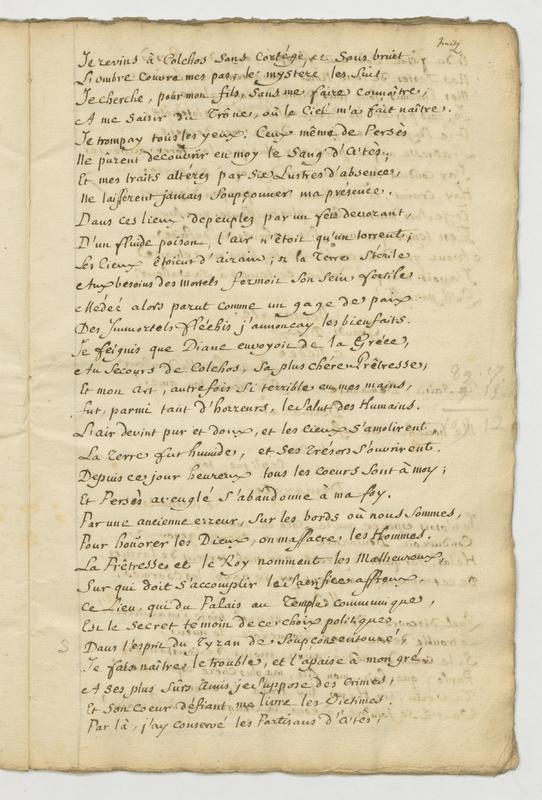 Je revins à Colchos sans cortége, et sans bruit
L'ombre couvre mes pas, le mystere les suit.
Je cherche, pour mon fils, sans me faire connoître,
A me saisir du Trône, où le Ciel m'a fait naître.
Je trompay tous les yeux; Ceux même de Persès
Ne pûrent découvrir en moy le Sang d'Œtès;
Et mes traits alterés par six Lustres d'absence,
Ne laisserent jamais soupçonner ma présence.
Dans ces lieux depeuplés par un feu devorant,
D'un fluide poison, l'air n'étoit qu'un torrent;
Les Cieux étoient d'airain; et la Terre Stérile
Aux besoins des Mortels fermoit son sein fertile
Médée alors parut comme un gage de paix
Des Immortels fléchis j'annonçay les bienfaits.
Je feignis que Diane envoyoit de la Gréce,
Au Secours de Colchos, sa plus chére Prêtresse;
Et mon Art, autrefois si terrible en mes mains,
fut, parmi tant d'horreurs, le salut des Humains.
L'air devint pur et doux, et les Cieux s'amolirent,
La Terre fut humide, et ses Trésors s'ouvrirent.
Depuis ce jour heureux tous les coeurs sont à moy;
Et Persès aveuglé s'abandonne à ma foy.
Par une ancienne erreur, sur les bords où nous sommes,
Pour honorer les Dieux, on massacre les Hommes.
La Prêtresse et le Roy nomment les Malheureux,
Sur qui doit s'accomplir le sacrifice affreux.
Ce Lieu, qui du Palais au Temple communique,
Est le secret temoin de ce choix politique.
Dans l'esprit du Tyran de soupçons entouré,
Je fais naître le trouble, et l'apaise à mon gré.
A ses plus sûrs Amis je suppose des Crimes,
Et son coeur défiant me livre les Victimes.
Par là, j'ay conservé les Partisans d'Œtès,